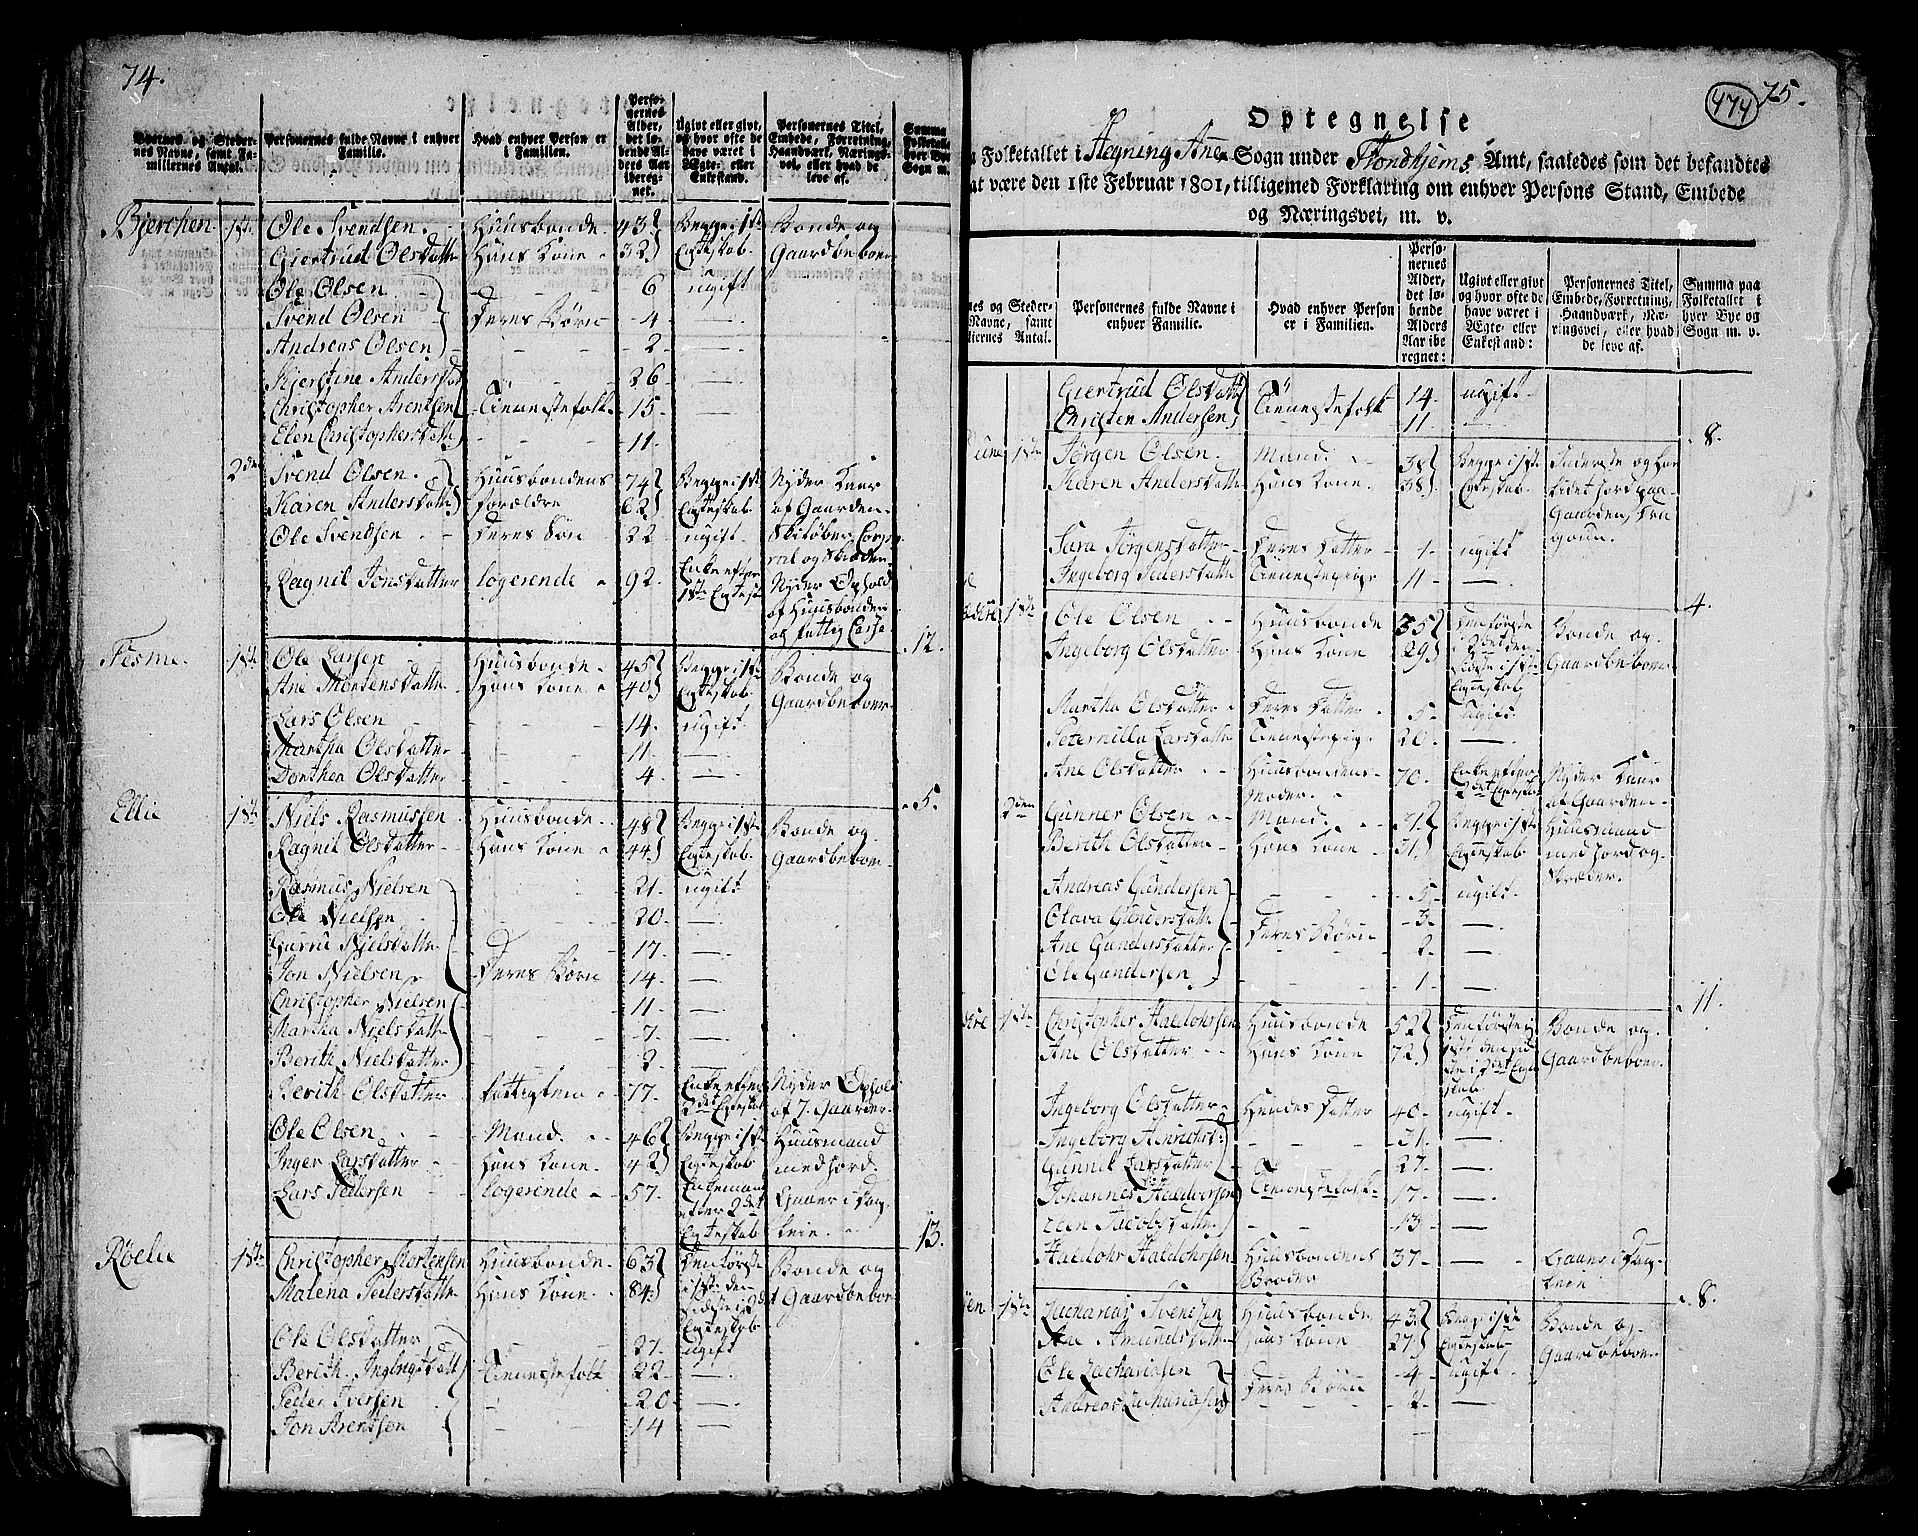 74.
Byernes og Stedernes Navne, samt Familiernes Antal.
Personernes fulde Navne i enhver Familie.
Hvad enhver Person er i Familien.
Personernes Alder, det løbende Alders Aar iberegnet.
Ugivt eller givt, og hvor ofte de have været i Ægte- eller Enkestand.
Personernes Titel, Embede, Forretning, Haandværk, Næringsvei, eller hvad de leve af.
Bjerchen 1ste Ole Svendsen Huusbonde 43 Begge i 1ste Bonde og
Giertrud Olsdatter Hans Kone 32 Egteskab Gaardbeboer
Ole Olsen 6 ugift
Svend Olsen Deres Børn 4 —
Andreas Olsen 2 —
Kjerstine Andersdatter 26 —
Christopher Arentsen Tienestefolk 15 —
Elen Christophersdatter 11 —
2den Svend Olsen Huusbondens 74 Begge i 1ste Nyder Kaar
Karen Andersdatter Forældre 62 Egteskab af Gaarden
Ole Svendsen Deres Søn 22 ugift Skiløber Corpo-
Ragnil Jonsdatter logerende 92 Enke efter 1ste Egtesk. Nyder Ophold
af Huusbonden
og Fattig Casse
12.
Fesme 1ste Ole Larsen Huusbonde 45 Begge i 1ste Bonde og
Ane Mortensdatter Hans Kone 40 Egteskab Gaardbeboer
Lars Olsen 14 ugift
Martha Olsdatter 11 —
Dorthea Olsdatter 4 —
5.
Ellie 1ste Niels Rasmussen Huusbonde 48 Begge i 1ste Bonde og
Ragnil Olsdatter Hans Kone 44 Egteskab Gaardbeboer
Rasmus Nielsen 21 ugift
Ole Nielsen 20 —
Gurru Nielsdatter 17 —
Jon Nielsen Deres Børn 14 —
Christopher Nielsen 11 —
Martha Nielsdatter 7 —
Berith Nielsdatter 2 —
Berith Olsdatter Fattiglem 77 Enke efter Nyder Ophold
2det Egteskab af 7 Gaarder
Ole Olsen Mand 46 Begge i 1ste Huusmand
Inger Larsdatter Hans Kone 42 Egteskab med Jord
Lars Pedersen logerende 57 Enkemand Gaaer i Dag-
efter 2det leie
Egteskab
13.
Røelie 1ste Christopher Mortensen Huusbonde 63 Den første Bonde og
Malena Pedersdatter Hans Kone 84 i 1ste den Gaardbeboer
sidste i 2det
Egteskab
Ole Olsdatter 27 ugift
Berith Ingbrigtsdatt. Tienestefolk 22 —
Peder Iversen 20 —
Jon Arentsen 14 —
474
75.
Optegnelse
Folketallet i Hegning Anex Sogn under Trondhjems Amt, saaledes som det befandtes
at være den 1ste Februar 1801, tilligemed Forklaring om enhver Persons Stand, Embede
og Næringsvei, m. v.
Personernes fulde Navne i enhver Familie.
Hvad enhver Person er i Familien.
Personernes Alder, det løbende Alders Aar iberegnet:
Ugivt eller givt og hvor ofte de have været i Ægte- eller Enkestand:
Personernes Titel, Embede, Forretning, Haandværk, Næringsvei, eller hvad de leve af.
Summa paa Folketallet i hver Bye og Sogn m. v.
Giertrud Olsdatter Tienestefolk 14 ugift
Christen Andersen 11 —
8.
1ste Jørgen Olsen Mand 38 Begge i 1ste Inderste og har
Karen Andersdatter Hans Kone 38 Egteskab lidet Jord paa
Gaarden
Sara Jørgensdatter Deres Datter 1 ugift
Ingeborg Pedersdatter Tienestepige 11 —
4.
1ste Ole Olsen Huusbonde 35 Den første Bonde og
Ingeborg Olsdatter Hans Kone 29 i 2det den Gaardbeboer
sidste i 1ste
Egteskab
Martha Olsdatter Deres Datter 5 ugift
Peternilla Larsdatter Tienestepige 20 —
Ane Olsdatter Huusbondens 70 Enke efter Nyder Kaar
Moder 2det Egteskab af Gaarden
2den Gunner Olsen Mand 31 Begge i 1ste Huusmand
Berith Olsdatter Hans Kone 31 Egteskab med Jord og
Andreas Gundersen 5 ugift Skræder
Olava Gundersdatt. 3 —
Ane Gundersdatter Deres Børn 2 —
Ole Gundersen 1 —
11.
1ste Christopher Haldohrsen Huusbonde 52 Den første i Bonde og
Ane Olsdatter Hans Kone 72 1ste den sid- Gaardbeboer
ste i 2det Egte-
skab
Ingeborg Olsdatter Hendes Datter 40 ugift
Ingeborg Henrichsd: 31 —
Gunnil Larsdatter 27 —
Johannes Haldorsen Tienestefolk 17 —
Jacobsdatter 13 —
Haldohr Haldohrsen Huusbondens 37 — Gaaer i Dag-
Broder leie
8.
1ste Zacharias Svendsen Huusbonde 43 Begge i 1ste Bonde og
Ane Amundsdatter Hans Kone 27 Egteskab Gaardbeboer
Ole Zachariasen 4 ugift
Andreas Zachariasen Deres Børn 2 —